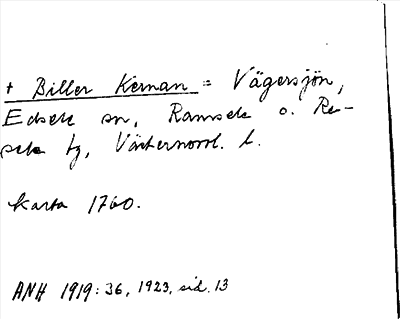 + Biller Kernan = Vägersjön,
Edsele sn, Ramsele o. Re-
sele tg, Västernorrl. l.
Karta 1760.
ANH 1919:36, 1923, sid. 13